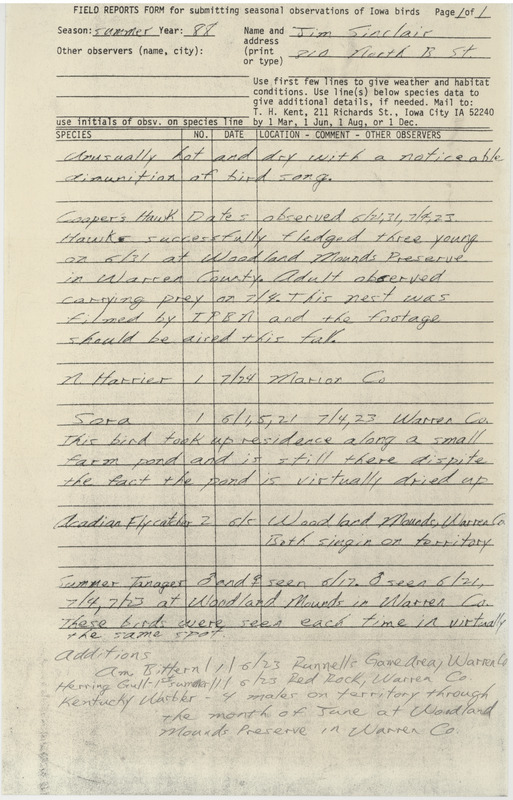 FIELD REPORTS FORM for submitting seasonal observations of Iowa birds Page 1 of 1
Season: summer Year: 88 Name and Jim Sinclair
address
Other observers (name, city): (print 810 North B St
or type)
Use first few lines to give weather and habitat
conditions. Use line(s) below species data to
give additional details, if needed. Mail to:
T. H. Kent, 211 Richards St., Iowa City IA 52240
use initials of obsv. on species line by 1 Mar, 1 Jun, 1 Aug, or 1 Dec.
SPECIES NO. DATE LOCATION - COMMENT - OTHER OBSERVERS
Unusually hot and dry with a noticeable
dimunition of bird song.
Cooper's Hawk Dates observed 6/21,31, 7/4,23
Hawks successfully fledged three young
on 6/31 at Woodland Mounds Preserve
in Warren County. Adult observed
carrying prey on 7/4. This nest was
filmed by IPBN and the footage
should be aired this fall.
N Harrier 1 7/24 Marion Co
Sora 1 6/1,5,21 7/4,23 Warren Co.
This bird took up residence along a small
farm pond and is still there dispite
the fact the pond is virtually dried up
Acadian Flycatcher 2 6/5 Woodland Mounds, Warren Co
Both singin on territory
Summer Tanager ♂ and ♀ seen 6/17. ♂ seen 6/21,
7/4, 7/23 at Woodland Mounds in Warren Co.
These birds were seen each time in virtually
the same spot.
Additions
Am. Bittern / 1 / 6/23 Runnells Game Area, Warren Co
Herring Gull-1st summer / 1 / 6/23 Red Rock, Warren Co.
Kentucky Warbler - 4 males on territory through
the month of June at Woodland
Mounds Preserve in Warren Co.